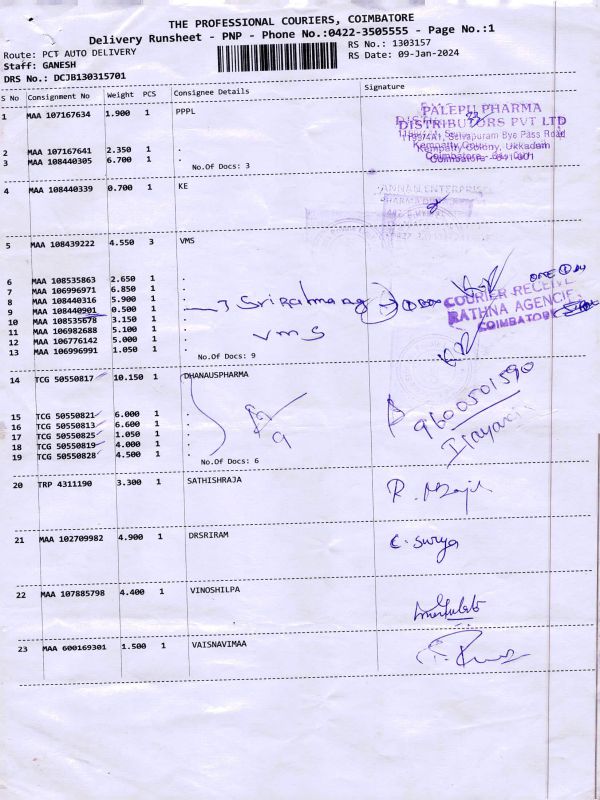 THE PROFESSIONAL COURIERS, COIMBATORE
Delivery Runsheet - PNP - Phone No.:0422-3505555 - Page No.:1
Route: PCT AUTO DELIVERY
RS No.: 1303157
Staff: GANESH
RS Date: 09-Jan-2024
DRS No.: DCJB130315701
S No Consignment No Weight PCS Consignee Details Signature
1 MAA 107167634 1.900 1 PPPL
PALEPU PHARMA
DISTRIBUTORS PVT LTD
Selvapuram Bye Pass Road
Kempatty Colony, Ukkadam
2 MAA 107167641 2.350 1 .
3 MAA 108440305 6.700 1 .
No.Of Docs: 3
4 MAA 108440339 0.700 1 KE
5 MAA 108439222 4.550 3 VMS
6 MAA 108535863 2.650 1 .
7 MAA 106996971 6.850 1 .
8 MAA 108440316 5.900 1 .
9 MAA 108440901 0.500 1 .
10 MAA 108535678 3.150 1 .
11 MAA 106982688 5.100 1 .
12 MAA 106776142 5.000 1 .
13 MAA 106996991 1.050 1 .
vms
COURIER RECEIVE
RATHNA AGENCIE
COIMBATORE
No.Of Docs: 9
14 TCG 50550817 10.150 1 DHANAUSPHARMA
15 TCG 50550821 6.000 1 .
16 TCG 50550813 6.600 1 .
17 TCG 50550825 1.050 1 .
18 TCG 50550819 4.000 1 .
19 TCG 50550828 4.500 1 .
9600501590
No.Of Docs: 6
20 TRP 4311190 3.300 1 SATHISHRAJA
21 MAA 102709982 4.900 1 DRSRIRAM
C. Surya
22 MAA 107885798 4.400 1 VINOSHILPA
23 MAA 600169301 1.500 1 VAISNAVIMAA